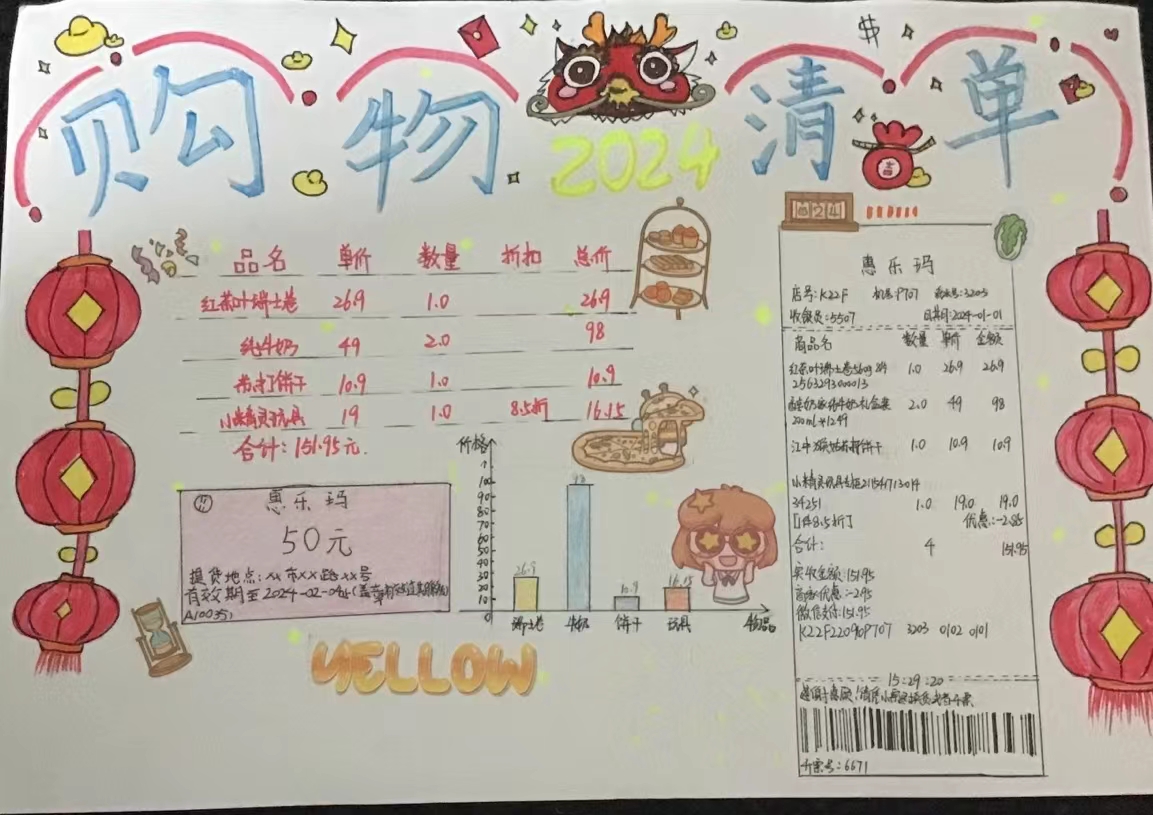 购物清单
2024
品名 单价 数量 折扣 总价
红茶叶瑞士卷 26.9 1.0 26.9
纯牛奶 49 2.0 98
苏打饼干 10.9 1.0 10.9
小精灵玩具 19 1.0 8.5折 16.15
合计:151.95元.
惠乐玛
50元
提货地点:xx市xx路xx号
有效期至2024-02-
价格
100
90
80
70
60
50
40
30
20
10
0
26.9 98 10.9 16.15
瑞士卷 牛奶 饼干 玩具 物品
YELLOW
2024
惠乐玛
店号:K22F 机号:P707 :3203
收银员:5507 日期:2024-01-01
商品名 数量 单价 金额
红茶叶瑞士卷 1.0 26.9 26.9
2563293000013
纯牛奶礼盒装 2.0 49 98
200ml*12
江中猴姑苏打饼干 1.0 10.9 10.9
小精灵玩具
34251 1.0 19.0 19.0
[1件8.5折] 优惠:-2.85
合计: 4 151.95
实收金额:151.95
优惠:-2.95
微信支付:151.95
K22F22090P707 3203 0102 0101
15:29:20
开票号:6671